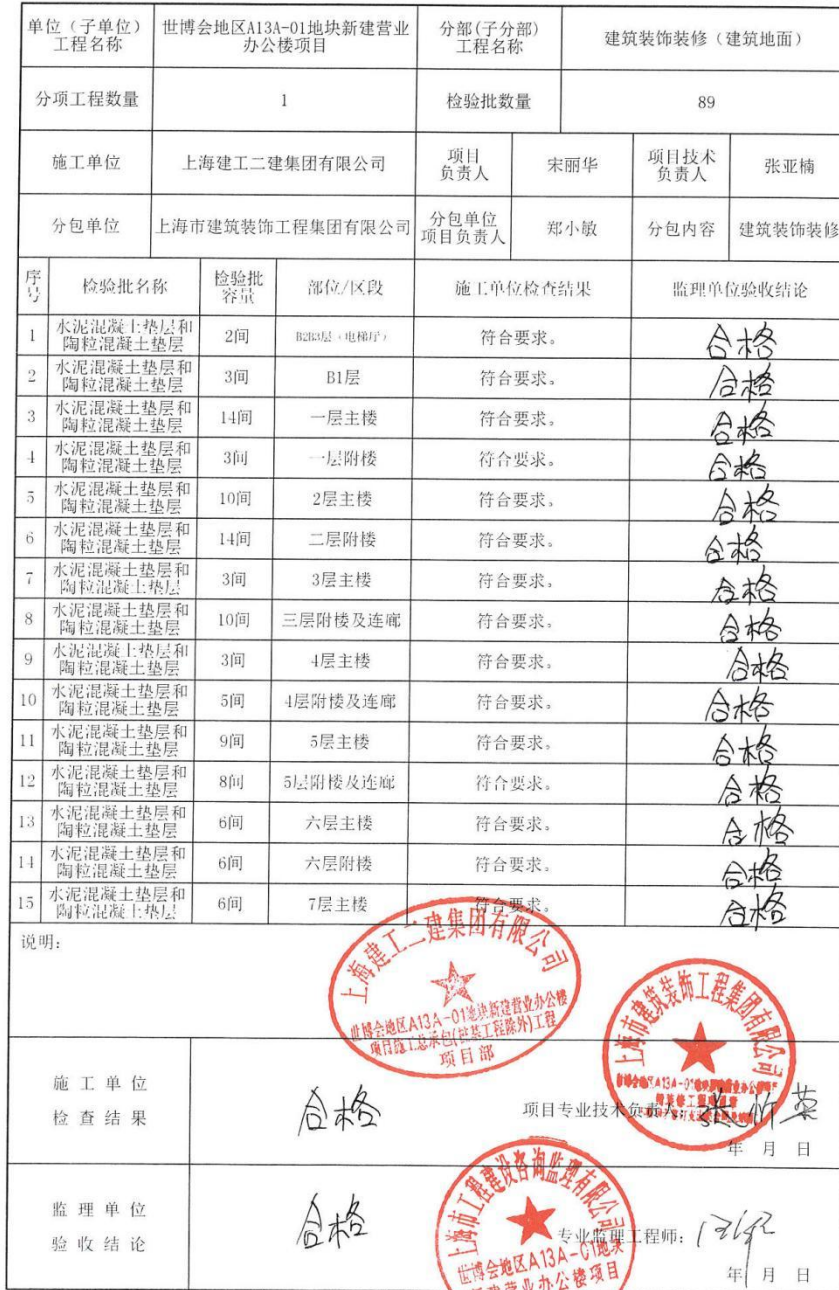 单位（子单位） 世博会地区A13A-01地块新建营业 分部(子分部) 建筑装饰装修（建筑地面）
工程名称 办公楼项目 工程名称
分项工程数量 1 检验批数量 89
施工单位 上海建工二建集团有限公司 项目 宋丽华 项目技术 张亚楠
负责人 负责人
分包单位 上海市建筑装饰工程集团有限公司 分包单位 郑小敏 分包内容 建筑装饰装修
项目负责人
序号 检验批名称 检验批容量 部位/区段 施工单位检查结果 监理单位验收结论
1 水泥混凝土垫层和陶粒混凝土垫层 2间 B2B3层（电梯厅） 符合要求。 合格
2 水泥混凝土垫层和陶粒混凝土垫层 3间 B1层 符合要求。 合格
3 水泥混凝土垫层和陶粒混凝土垫层 14间 一层主楼 符合要求。 合格
4 水泥混凝土垫层和陶粒混凝土垫层 3间 一层附楼 符合要求。 合格
5 水泥混凝土垫层和陶粒混凝土垫层 10间 2层主楼 符合要求。 合格
6 水泥混凝土垫层和陶粒混凝土垫层 14间 二层附楼 符合要求。 合格
7 水泥混凝土垫层和陶粒混凝土垫层 3间 3层主楼 符合要求。 合格
8 水泥混凝土垫层和陶粒混凝土垫层 10间 三层附楼及连廊 符合要求。 合格
9 水泥混凝土垫层和陶粒混凝土垫层 3间 4层主楼 符合要求。 合格
10 水泥混凝土垫层和陶粒混凝土垫层 5间 4层附楼及连廊 符合要求。 合格
11 水泥混凝土垫层和陶粒混凝土垫层 9间 5层主楼 符合要求。 合格
12 水泥混凝土垫层和陶粒混凝土垫层 8间 5层附楼及连廊 符合要求。 合格
13 水泥混凝土垫层和陶粒混凝土垫层 6间 六层主楼 符合要求。 合格
14 水泥混凝土垫层和陶粒混凝土垫层 6间 六层附楼 符合要求。 合格
15 水泥混凝土垫层和陶粒混凝土垫层 6间 7层主楼 符合要求。 合格
说明：
上海建工二建集团有限公司
世博会地区A13A-01地块新建营业办公楼
项目施工总承包(桩基工程除外)工程
项目部
上海市建筑装饰工程集团有限公司
施工单位
检查结果
合格
项目专业技术负责人：
年 月 日
监理单位
验收结论
合格
上海市工程建设咨询监理有限公司
世博会地区A13A-01地块
新建营业办公楼项目
专业监理工程师：
年 月 日